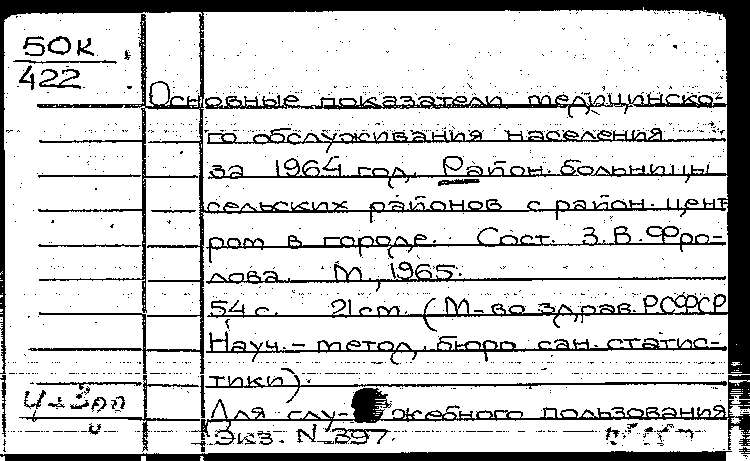 50К
422
Основные показатели медицинско-
го обслуживания населения
за 1964 год. Район. больницы
сельских районов с район. цент
ром в городе. Сост. З.В.Фро-
лова. М., 1965.
54 с. 21 см. (М-во здрав. РСФСР
Науч.-метод. бюро сан. статис-
тики).
Для слу-жебного пользования
Экз. N 397.